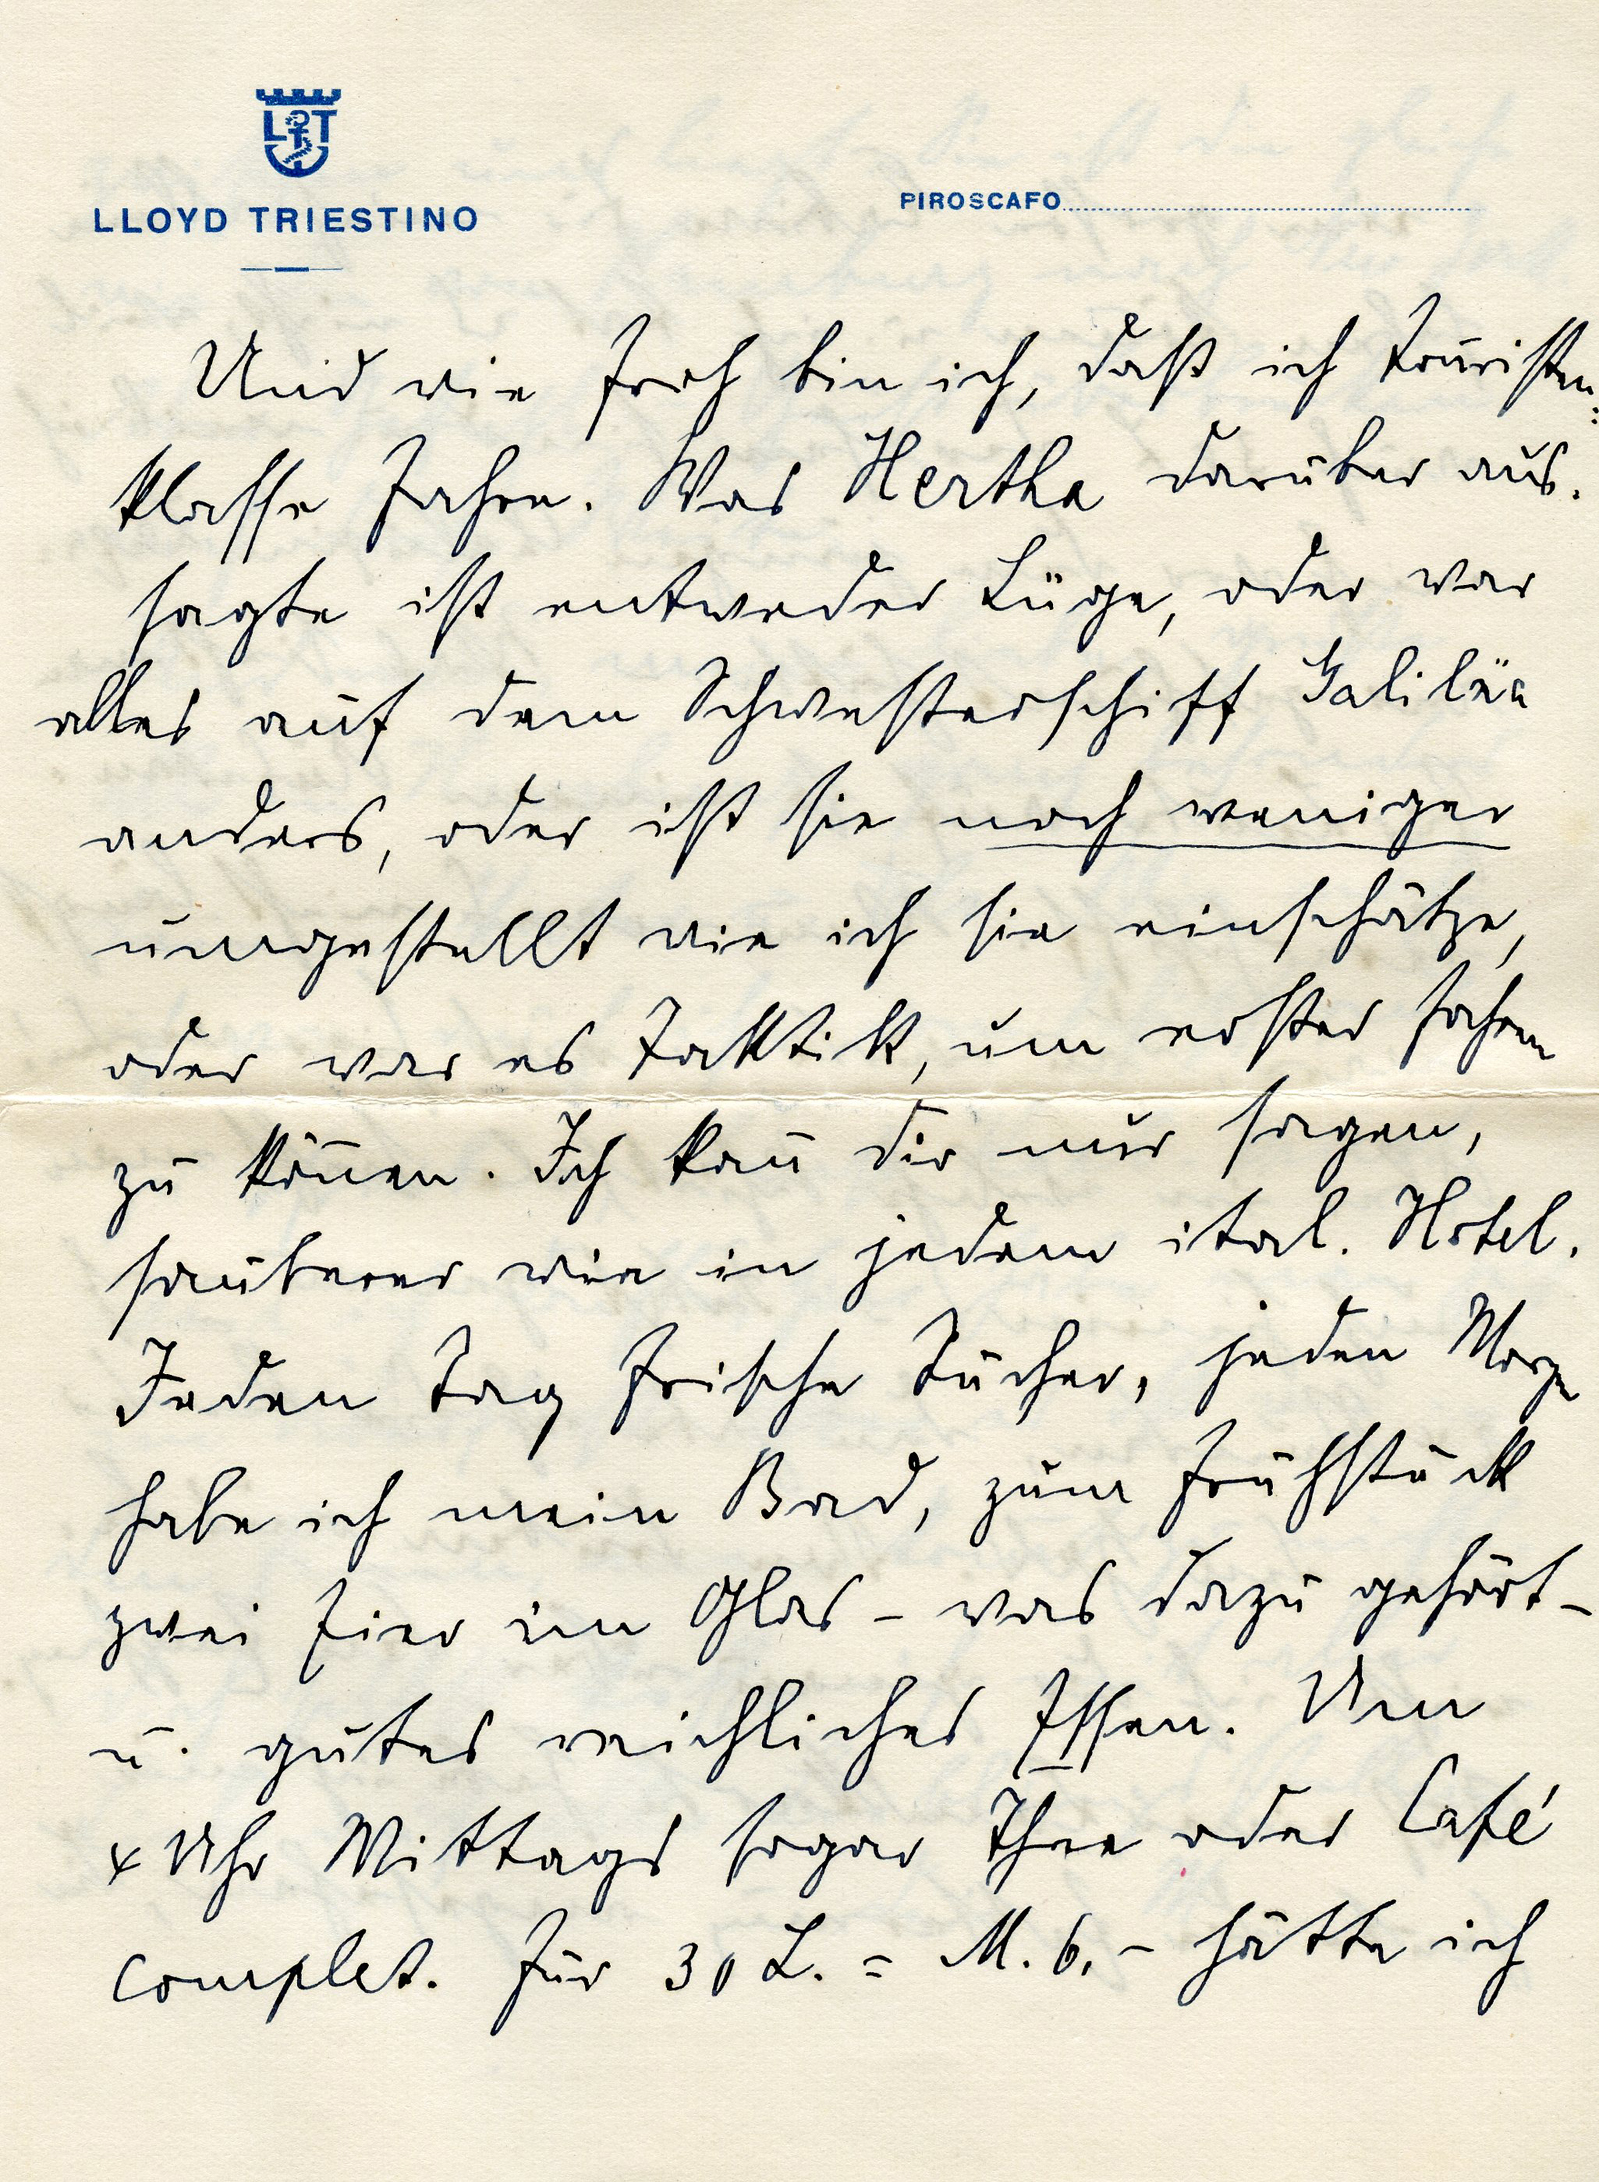 LLOYD TRIESTINO
PIROSCAFO
Und wie froh bin ich, daß ich Touristen:
klasse fahre. Was Hertha darüber aus.
sagte ist entweder Lüge, oder war
alles auf dem Schwesterschiff Galiläa
anders, oder ist sie noch weniger
umgestellt wie ich sie einschätze,
oder war es Taktik, um erster fahren
zu köñen. Ich kañ dir nur sagen,
sauberer wie in jedem ital. Hotel.
Jeden Tag frische Tücher, jeden Morgen
habe ich mein Bad, zum Frühstück
zwei Eier im Glas – was dazu gehört –
u. gutes reichliches Essen. Um
4 Uhr Mittags sogar Thee oder Café
complet. Für 30 L. = M. 6.– hätte ich